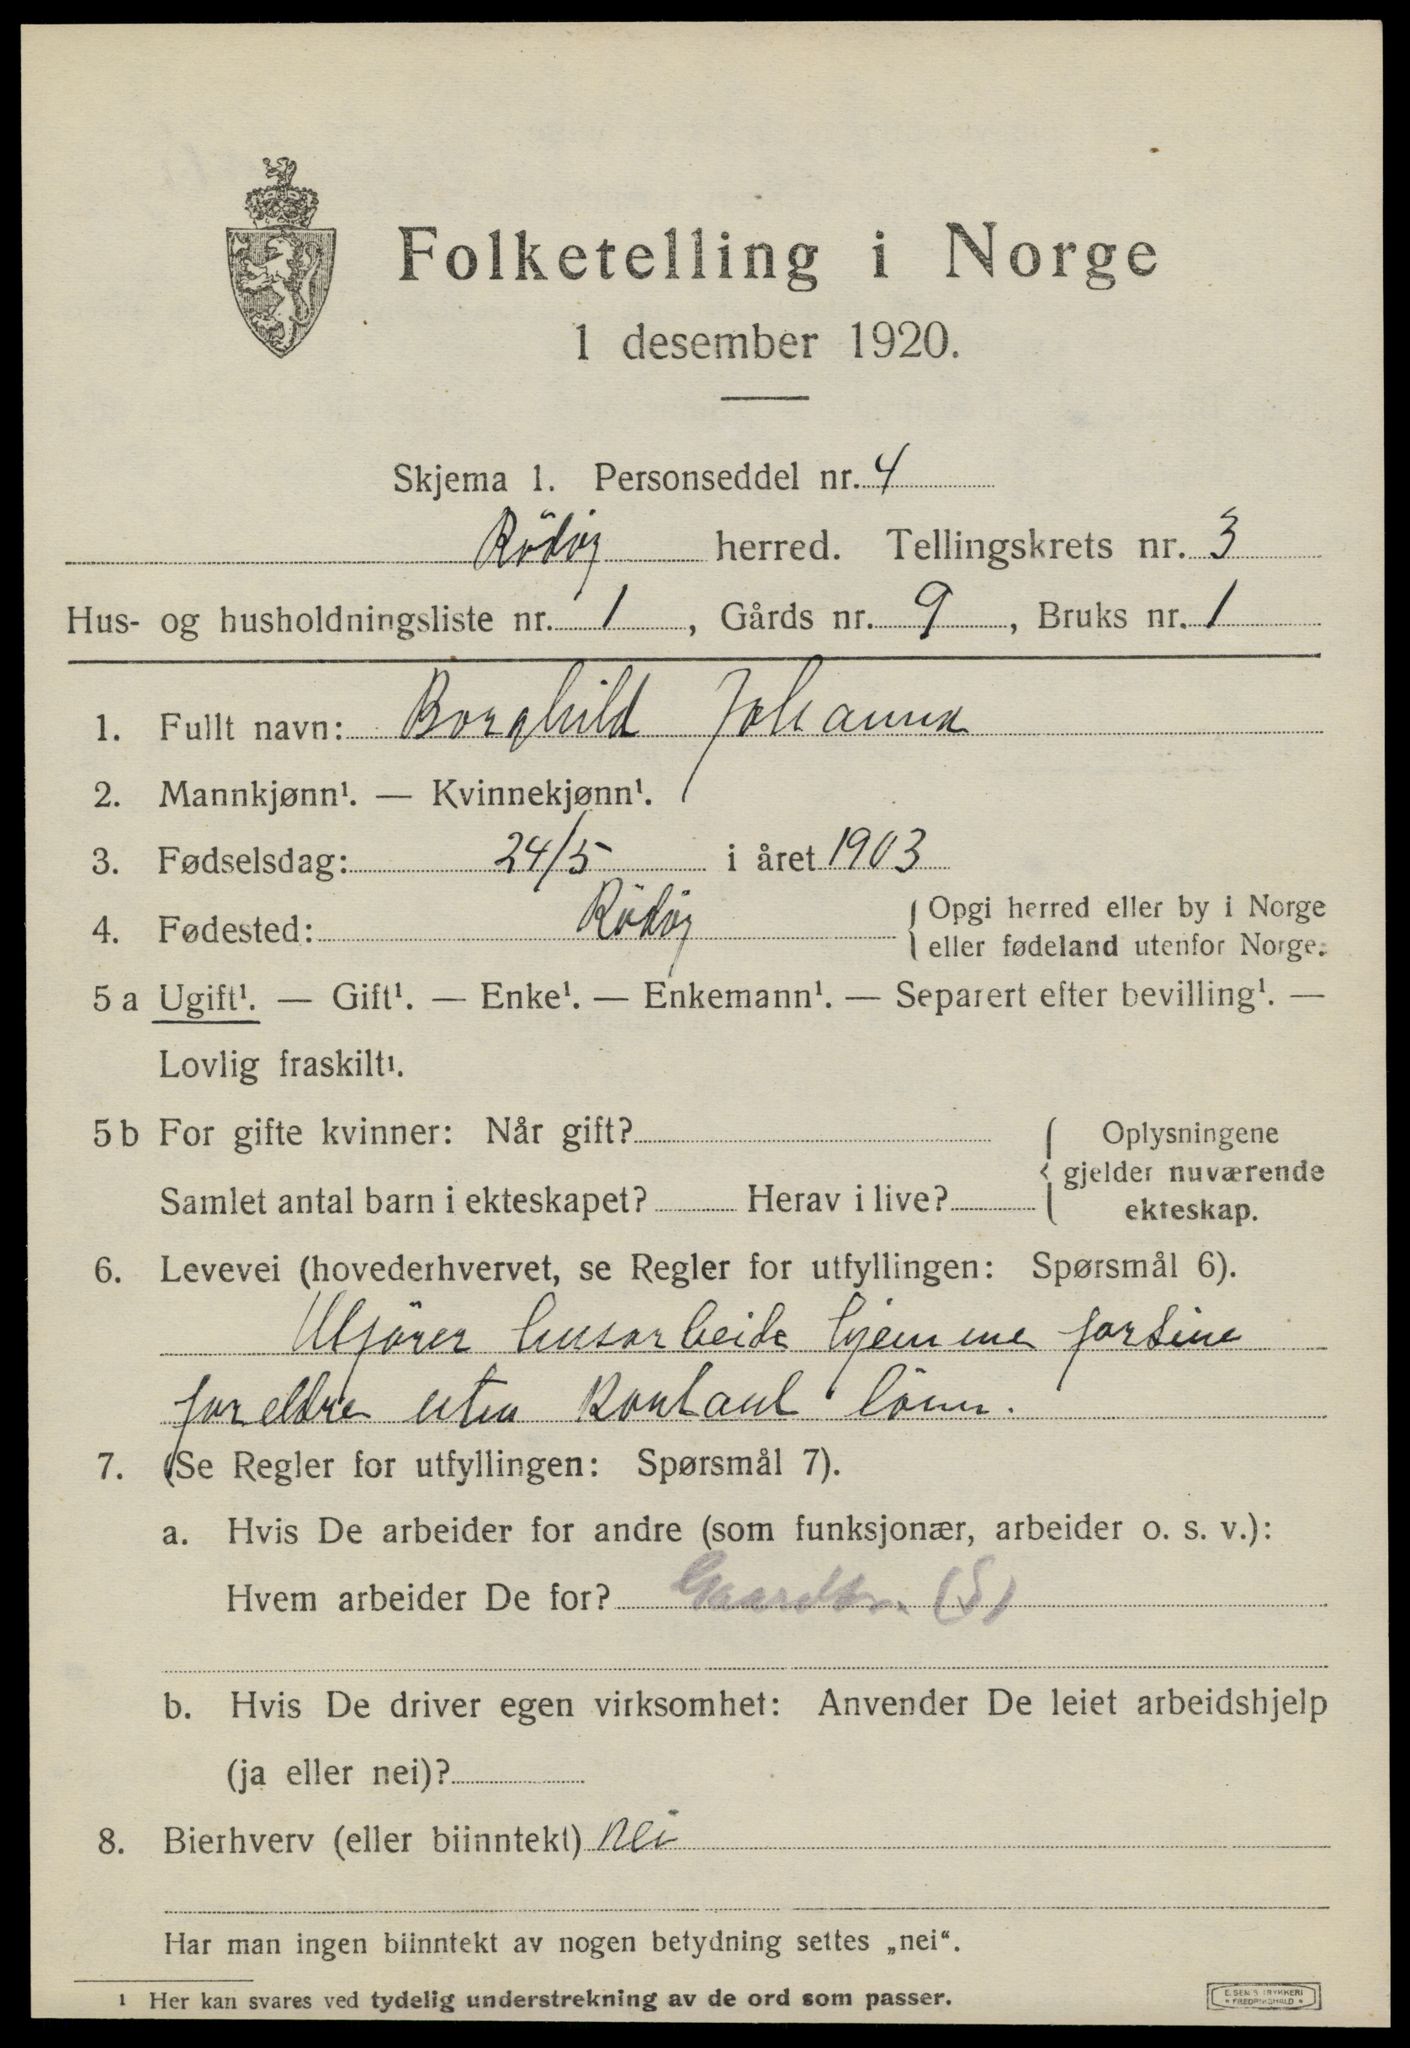 Folketelling i Norge
1 desember 1920.
Skjema 1. Personseddel nr. 4
Rödöy herred. Tellingskrets nr. 3
Hus- og husholdningsliste nr. 1, Gårds nr. 9, Bruks nr. 1
1. Fullt navn: Borghild Johanna
2. Mannkjønn¹. — Kvinnekjønn¹.
3. Fødselsdag: 24/5 i året 1903
4. Fødested: Rödöy { Opgi herred eller by i Norge
eller fødeland utenfor Norge.
5 a Ugift¹. — Gift¹. — Enke¹. — Enkemann¹. — Separert efter bevilling¹. —
Lovlig fraskilt¹.
5 b For gifte kvinner: Når gift?
Samlet antal barn i ekteskapet? Herav i live?
{ Oplysningene
gjelder nuværende
ekteskap.
6. Levevei (hovederhvervet, se Regler for utfyllingen: Spørsmål 6).
Utfører husarbeide hjemme for sine
foreldre uten kontant lönn.
7. (Se Regler for utfyllingen: Spørsmål 7).
a. Hvis De arbeider for andre (som funksjonær, arbeider o. s. v.):
Hvem arbeider De for? Gaardbr. (S)
b. Hvis De driver egen virksomhet: Anvender De leiet arbeidshjelp
(ja eller nei)?
8. Bierhverv (eller biinntekt) nei
Har man ingen biinntekt av nogen betydning settes „nei“.
¹ Her kan svares ved tydelig understrekning av de ord som passer.
E. SEM'S TRYKKERI
• FREDRIKSHALD •